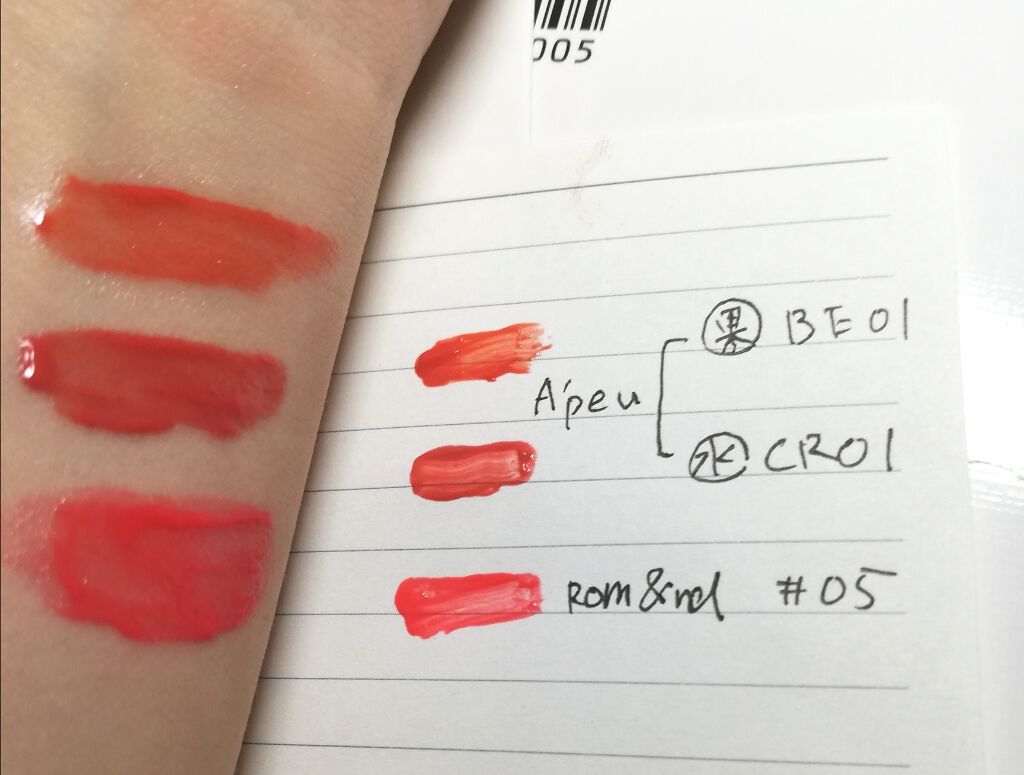 005
果 BE01
A'peu
水 CR01
Rom&nd #05